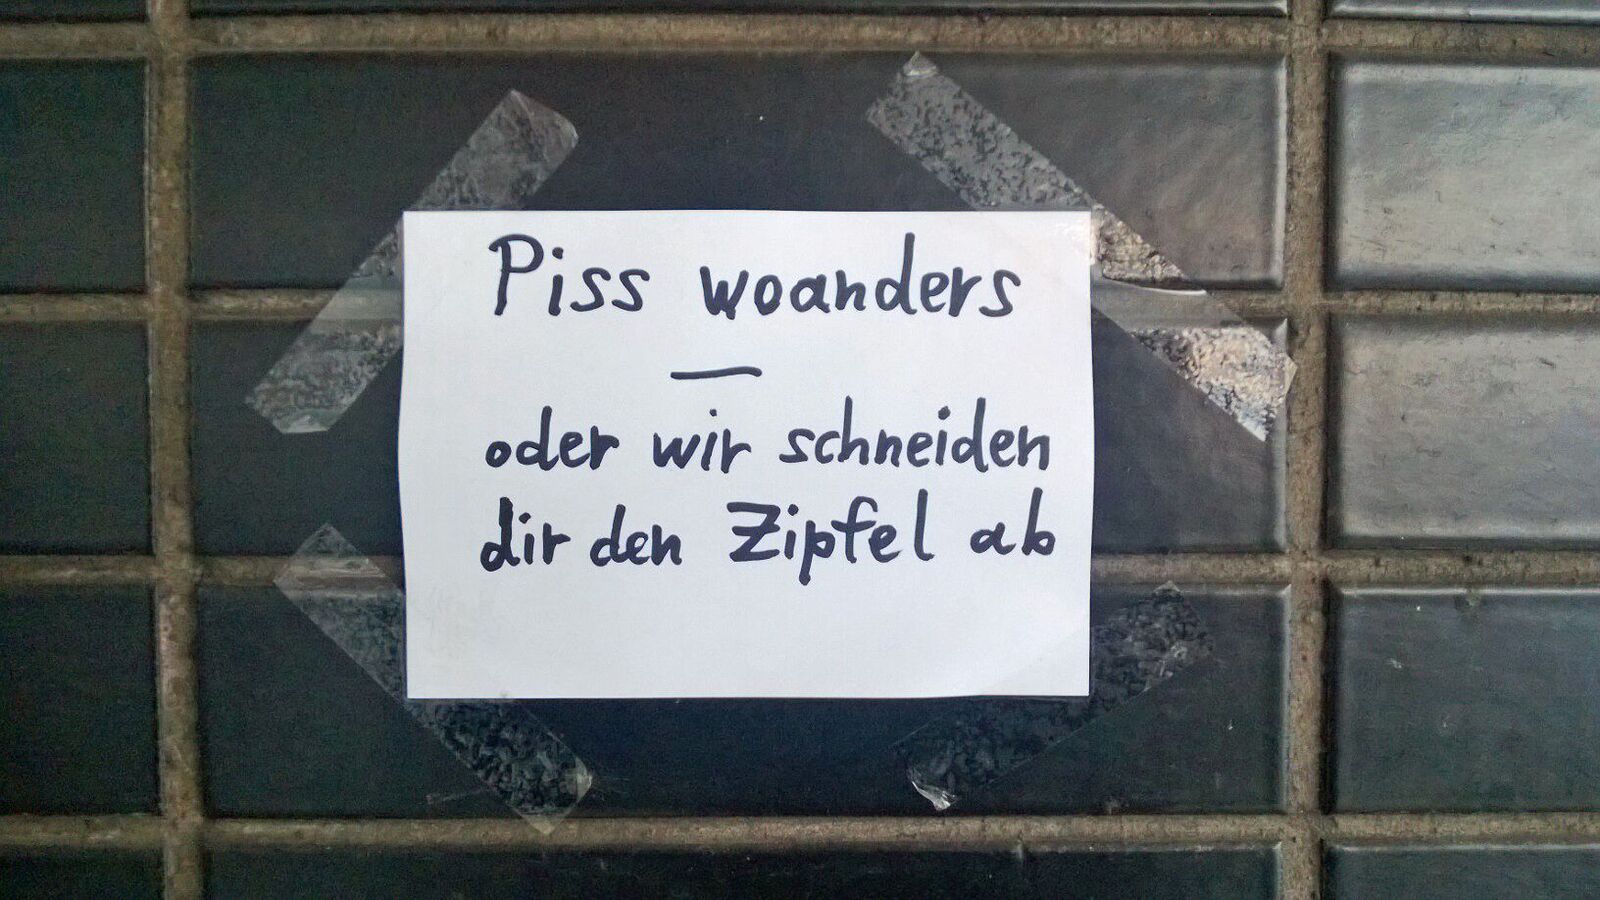 Piss woanders
—
oder wir schneiden
dir den Zipfel ab